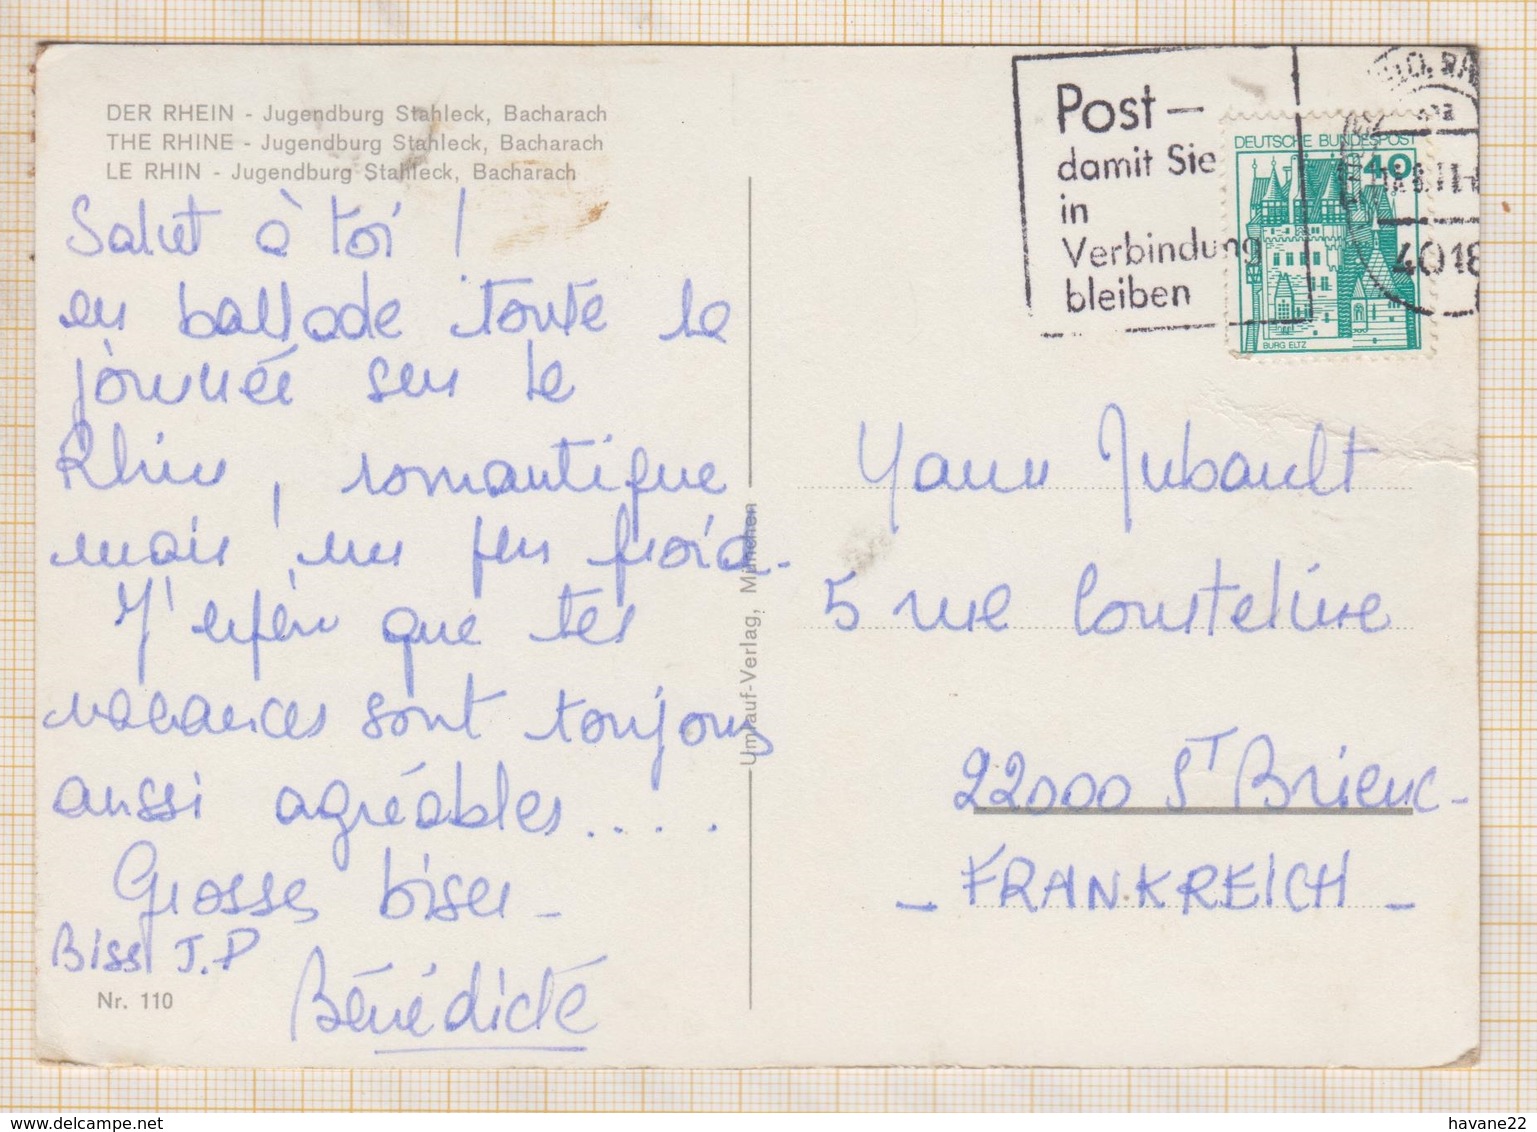 DER RHEIN - Jugendburg Stahleck, Bacharach
THE RHINE - Jugendburg Stahleck, Bacharach
LE RHIN - Jugendburg Stahleck, Bacharach
Salut à toi !
en ballade toute la
journée sur le
Rhin, romantique
mais un peu froid.
J'espère que tes
vacances sont toujours
aussi agréables.....
Grosses bises -
Biss J.P
Bénédicte
Nr. 110
Umlauf-Verlag, München
Post -
damit Sie
in
Verbindung
bleiben
DEUTSCHE BUNDESPOST
40
BURG ELTZ
4018
Yann Jubault
5 rue Cousteline
22000 ST Brieuc -
- FRANKREICH -
www.delcampe.net
havane22